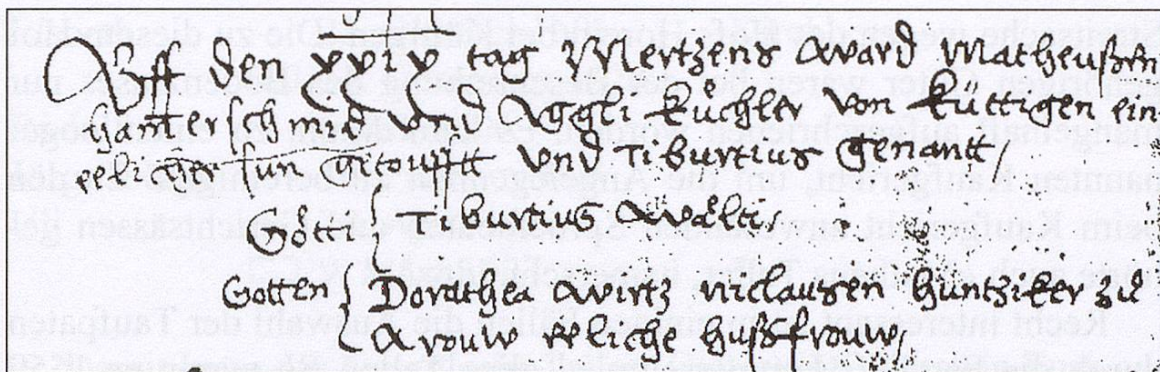 Uff den xxix tag Mertzens ward Matheußen
Hamerschmid und Aggli Küchler von Küttigen ein
elicher sun getoufft und Tiburtius genant /
Götti { Tiburtius Wälti /
Gotten { Dorathea Wirtz niclausen Huntzikers zů
Arouw eeliche hußfrouw /